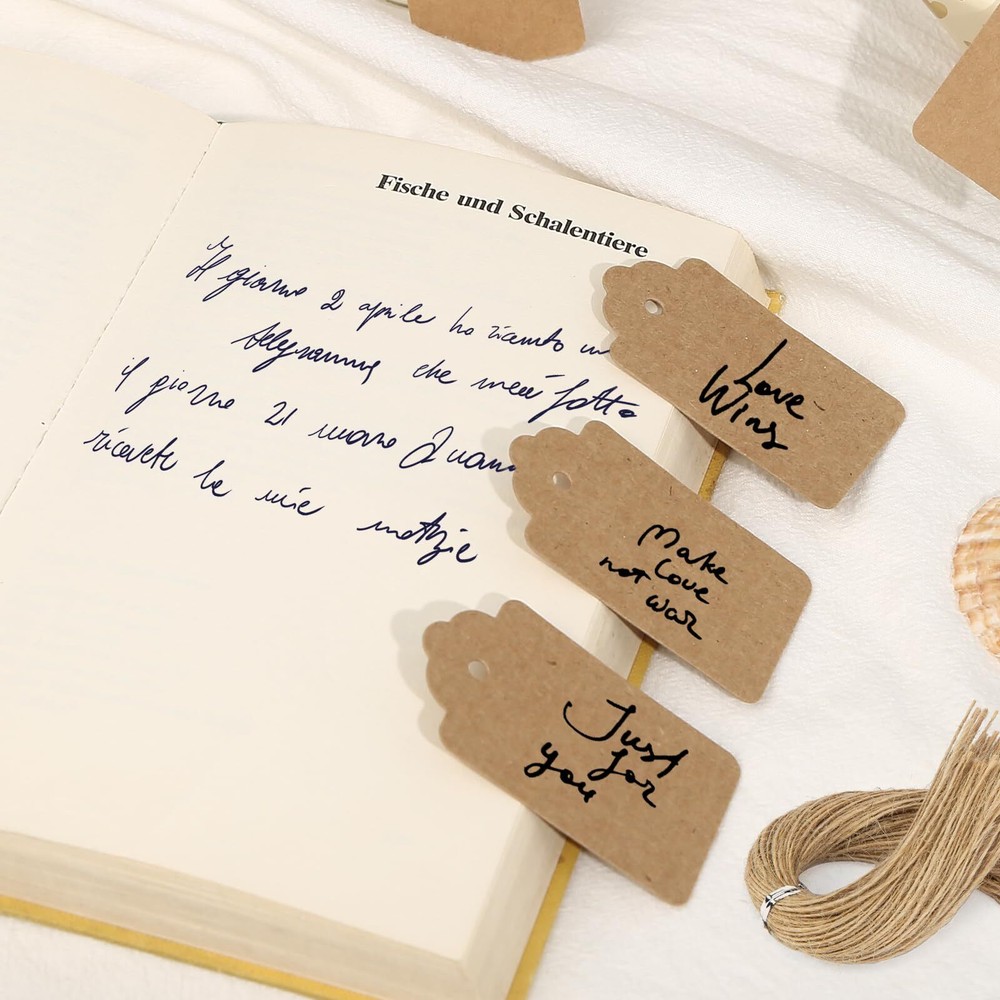 Fische und Schalentiere
Il giorno 2 aprile ho ricevuto un
telegramma che
fatto
il giorno 21
ricevete le mie notizie
Love
Wins
Make
love
not war
Just
for
you